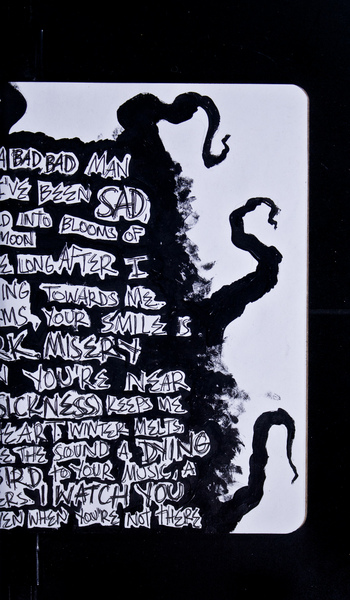 A BAD BAD MAN
I'VE BEEN SAD,
INTO BLOOMS OF
MOON
LONG AFTER I
ING TOWARDS ME.
YOUR SMILE IS
RK MISERY
YOU'RE NEAR
SICKNESS) KEEPS ME
HEART WINTER MELTS
THE SOUND A DYING
BIRD TO YOUR MUSIC, A
ERS I WATCH YOU
EVEN WHEN YOU'RE NOT THERE